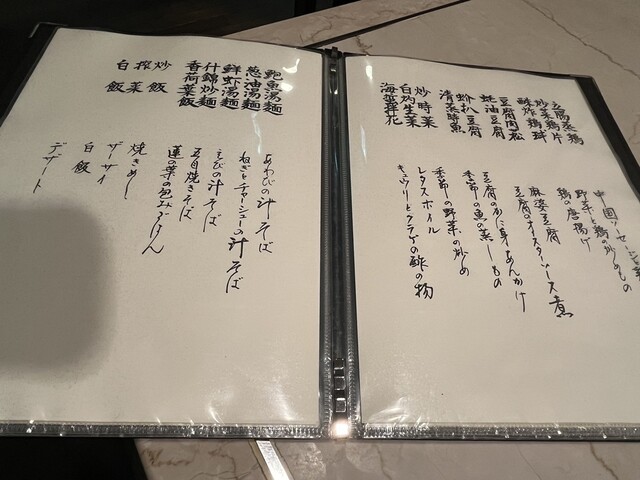 玉腐蒸鶏
炒菜鶏片
酥炸鶏球
豆腐肉松
蚝油豆腐
蚧扒豆腐
清蒸時魚
炒時菜
白灼生菜
海蜇拌花
中国ソーセージ
野菜と鶏の炒めもの
鶏の唐揚げ
麻婆豆腐
豆腐のオイスターソース煮
豆腐のかに身あんかけ
季節の魚の蒸しもの
季節の野菜の炒め
レタスボイル
キュウリとクラゲの酢の物
鮑魚湯麺
葱油湯麺
鮮虾湯麺
什錦炒麺
香荷葉飯
炒飯
搾菜
白飯
あわびの汁そば
ねぎとチャーシューの汁そば
えびの汁そば
五目焼きそば
蓮の葉の包みごはん
焼きめし
ザーサイ
白飯
デザート